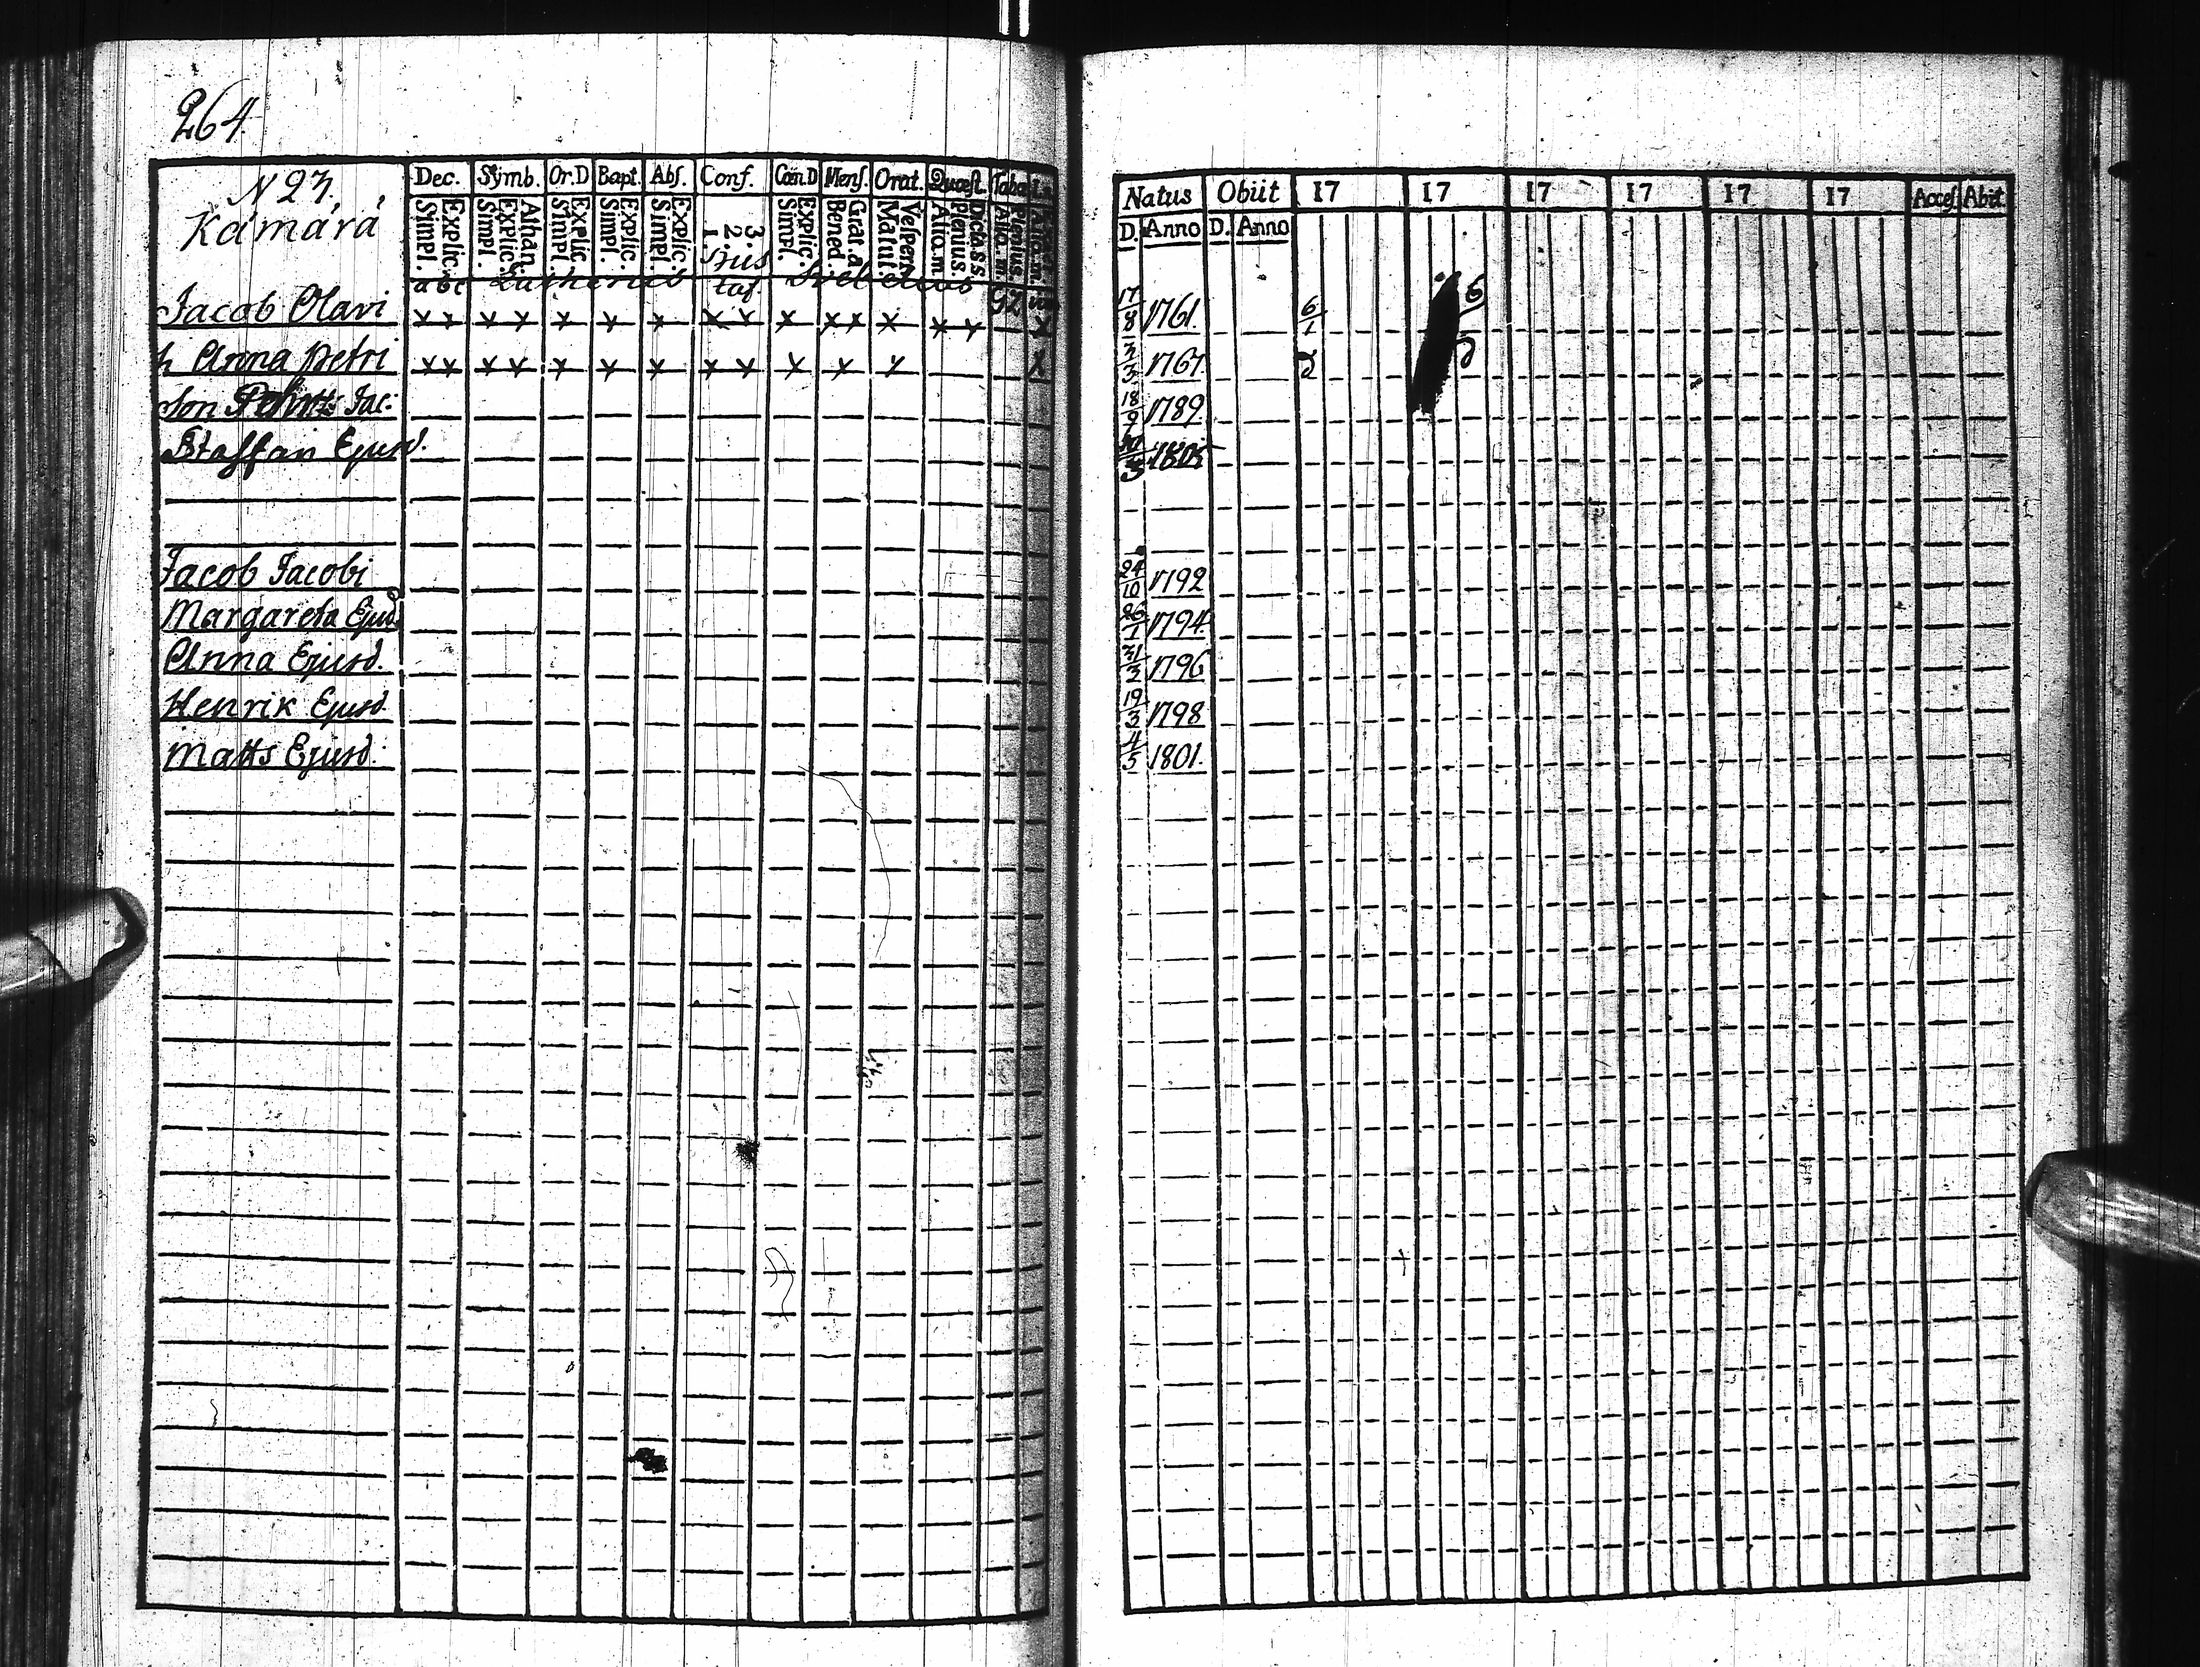 264.
N 23.
Kámárá
Dec. Symb. Or.D Bapt. Abs. Conf. Cœn.D Mens. Orat. Quæst. Taba
Simpl. Explic. Simpl. Explic. Athan. Simpl. Explic. Simpl. Explic. Simpl. Explic. 1. 2. 3. Simpl. Explic. Bened. Grat. a. Matut. Vespert. Alio. m. Plenius. Dicta. s. s. Alio. m. Plenius.
Natus Obiit 17 17 17 17 17 17 Acces. Abit.
D. Anno D. Anno
abc
Jacob Olavi x x x x x x x x x x x x x x x 17/8 1761. 6/1
h Anna Petri x x x x x x x x x x x x x 3/3 1767. 2
Son Jac: 18/9 1789.
Staffan Ejusd. 1805
Jacob Jacobi 24/10 1792
Margareta Ejusd. 26/1 1794.
Anna Ejusd. 31/3 1796
Henrik Ejusd. 19/3 1798
Matts Ejusd: 4/5 1801.